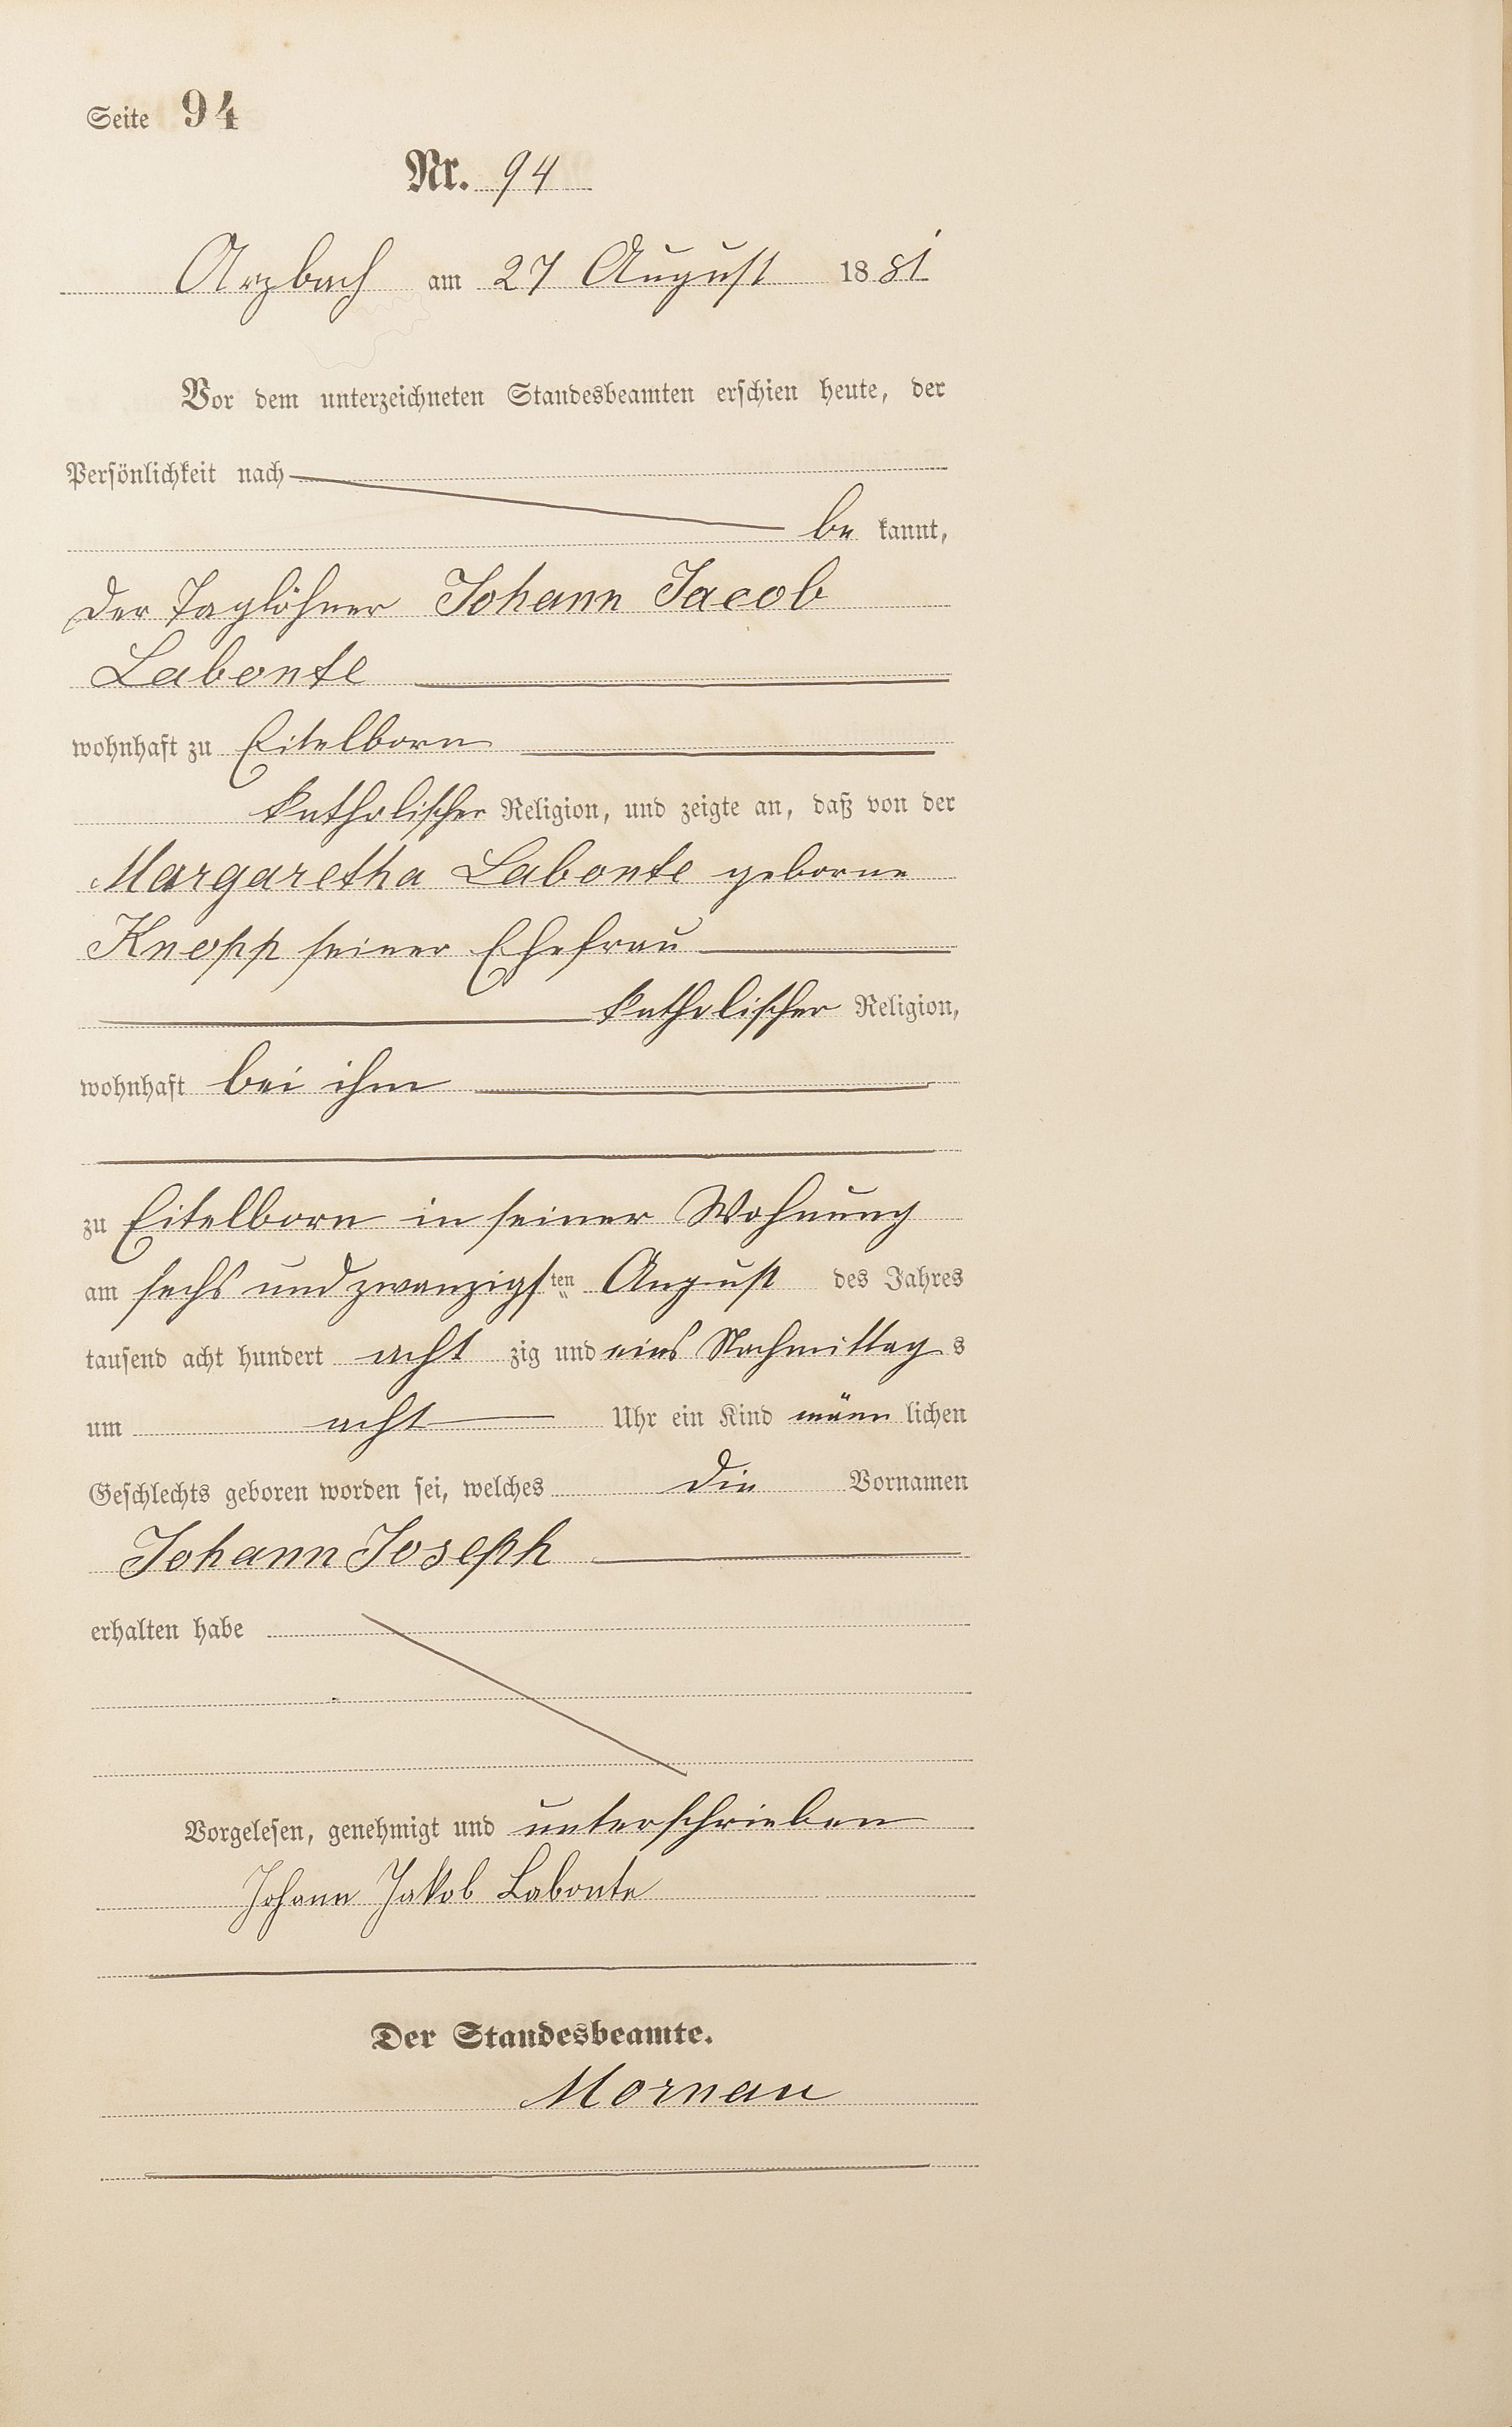 Seite 94
Nr. 94
Arzbach am 27 August 1881
Vor dem unterzeichneten Standesbeamten erschien heute, der
Persönlichkeit nach
be kannt,
der Taglöhner Johann Jacob
Labonte
wohnhaft zu Eitelborn
katholischer Religion, und zeigte an, daß von der
Margaretha Labonte geborne
Knopp seiner Ehefrau
katholischer Religion,
wohnhaft bei ihm
zu Eitelborn in seiner Wohnung
am sechs und zwanzigsten August des Jahres
tausend acht hundert acht zig und eins Nachmittag s
um acht Uhr ein Kind männ lichen
Geschlechts geboren worden sei, welches die Vornamen
Johann Joseph
erhalten habe
Vorgelesen, genehmigt und unterschrieben
Johann Jakob Labonte
Der Standesbeamte.
Mornau